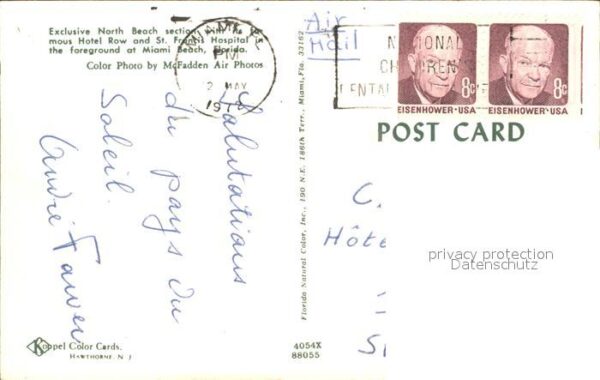 Exclusive North Beach section with its fa-
mous Hotel Row and St. Francis Hospital in
the foreground at Miami Beach, Florida.
Color Photo by McFadden Air Photos
MIAMI
PM
2 MAY
Air
Mail
NATIONAL
CHILDREN'S
DENTAL
8c
EISENHOWER·USA
8c
EISENHOWER·USA
POST CARD
Salutations
du pays du
Soleil.
André
Florida Natural Color, Inc., 190 N.E. 186th Terr., Miami, Fla. 33162
C.
Hôte
privacy protection
Datenschutz
Koppel Color Cards.
HAWTHORNE, N. J.
4054X
88055